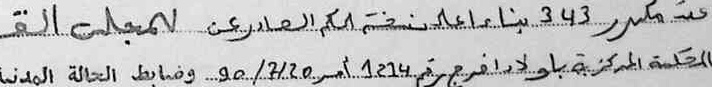 عدد مكرر 343 بناء على نسخة الحكم الصادر عن المجلس الق
المحكمة المركزية باولاد افرج رقم 1214 أمر 90/7/20 وضابط الحالة المدنية